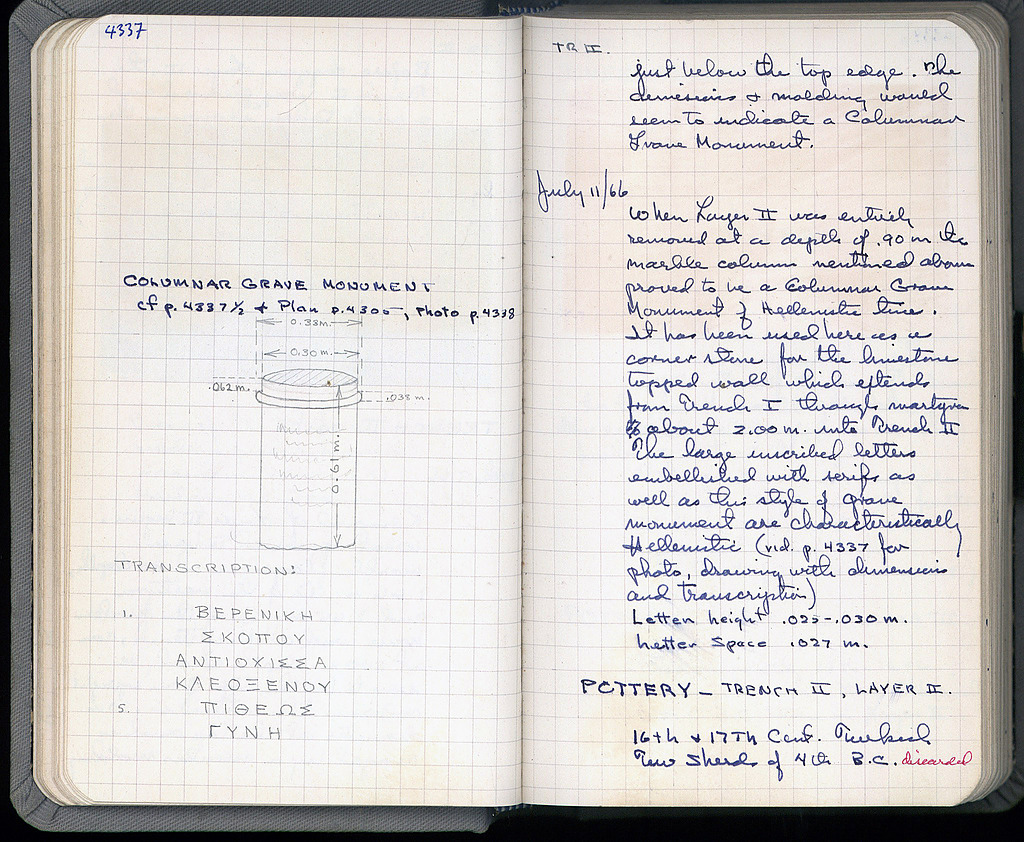 4337
COLUMNAR GRAVE MONUMENT
cf p. 4337 1/2 + Plan p. 4300, Photo p. 4338
0.33m.
0.30 m.
.062 m.
.038 m.
0.61 m.
TRANSCRIPTION:
1. ΒΕΡΕΝΙΚΗ
ΣΚΟΠΟΥ
ΑΝΤΙΟΧΙΣΣΑ
ΚΛΕΟΞΕΝΟΥ
5. ΠΙΘΕΩΣ
ΓΥΝΗ
TR II.
just below the top edge. The
dimensions + molding would
seem to indicate a Columnar
Grave Monument.
July 11/66
When Layer II was entirely
removed at a depth of .90 m the
marble column mentioned above
proved to be a Columnar Grave
Monument of Hellenistic time.
It has been used here as a
corner stone for the limestone
topped wall which extends
from Trench I through martyra
about 2.00 m. into Trench II
The large inscribed letters
embellished with serifs as
well as this style of grave
monument are characteristically
Hellenistic (vid. p. 4337 for
photo, drawing with dimensions
and transcription)
Letter height .025-.030 m.
Letter Space .027 m.
POTTERY – TRENCH II, LAYER II.
16th + 17th Cent. Turkish
Few Sherds of 4th B.C. discarded